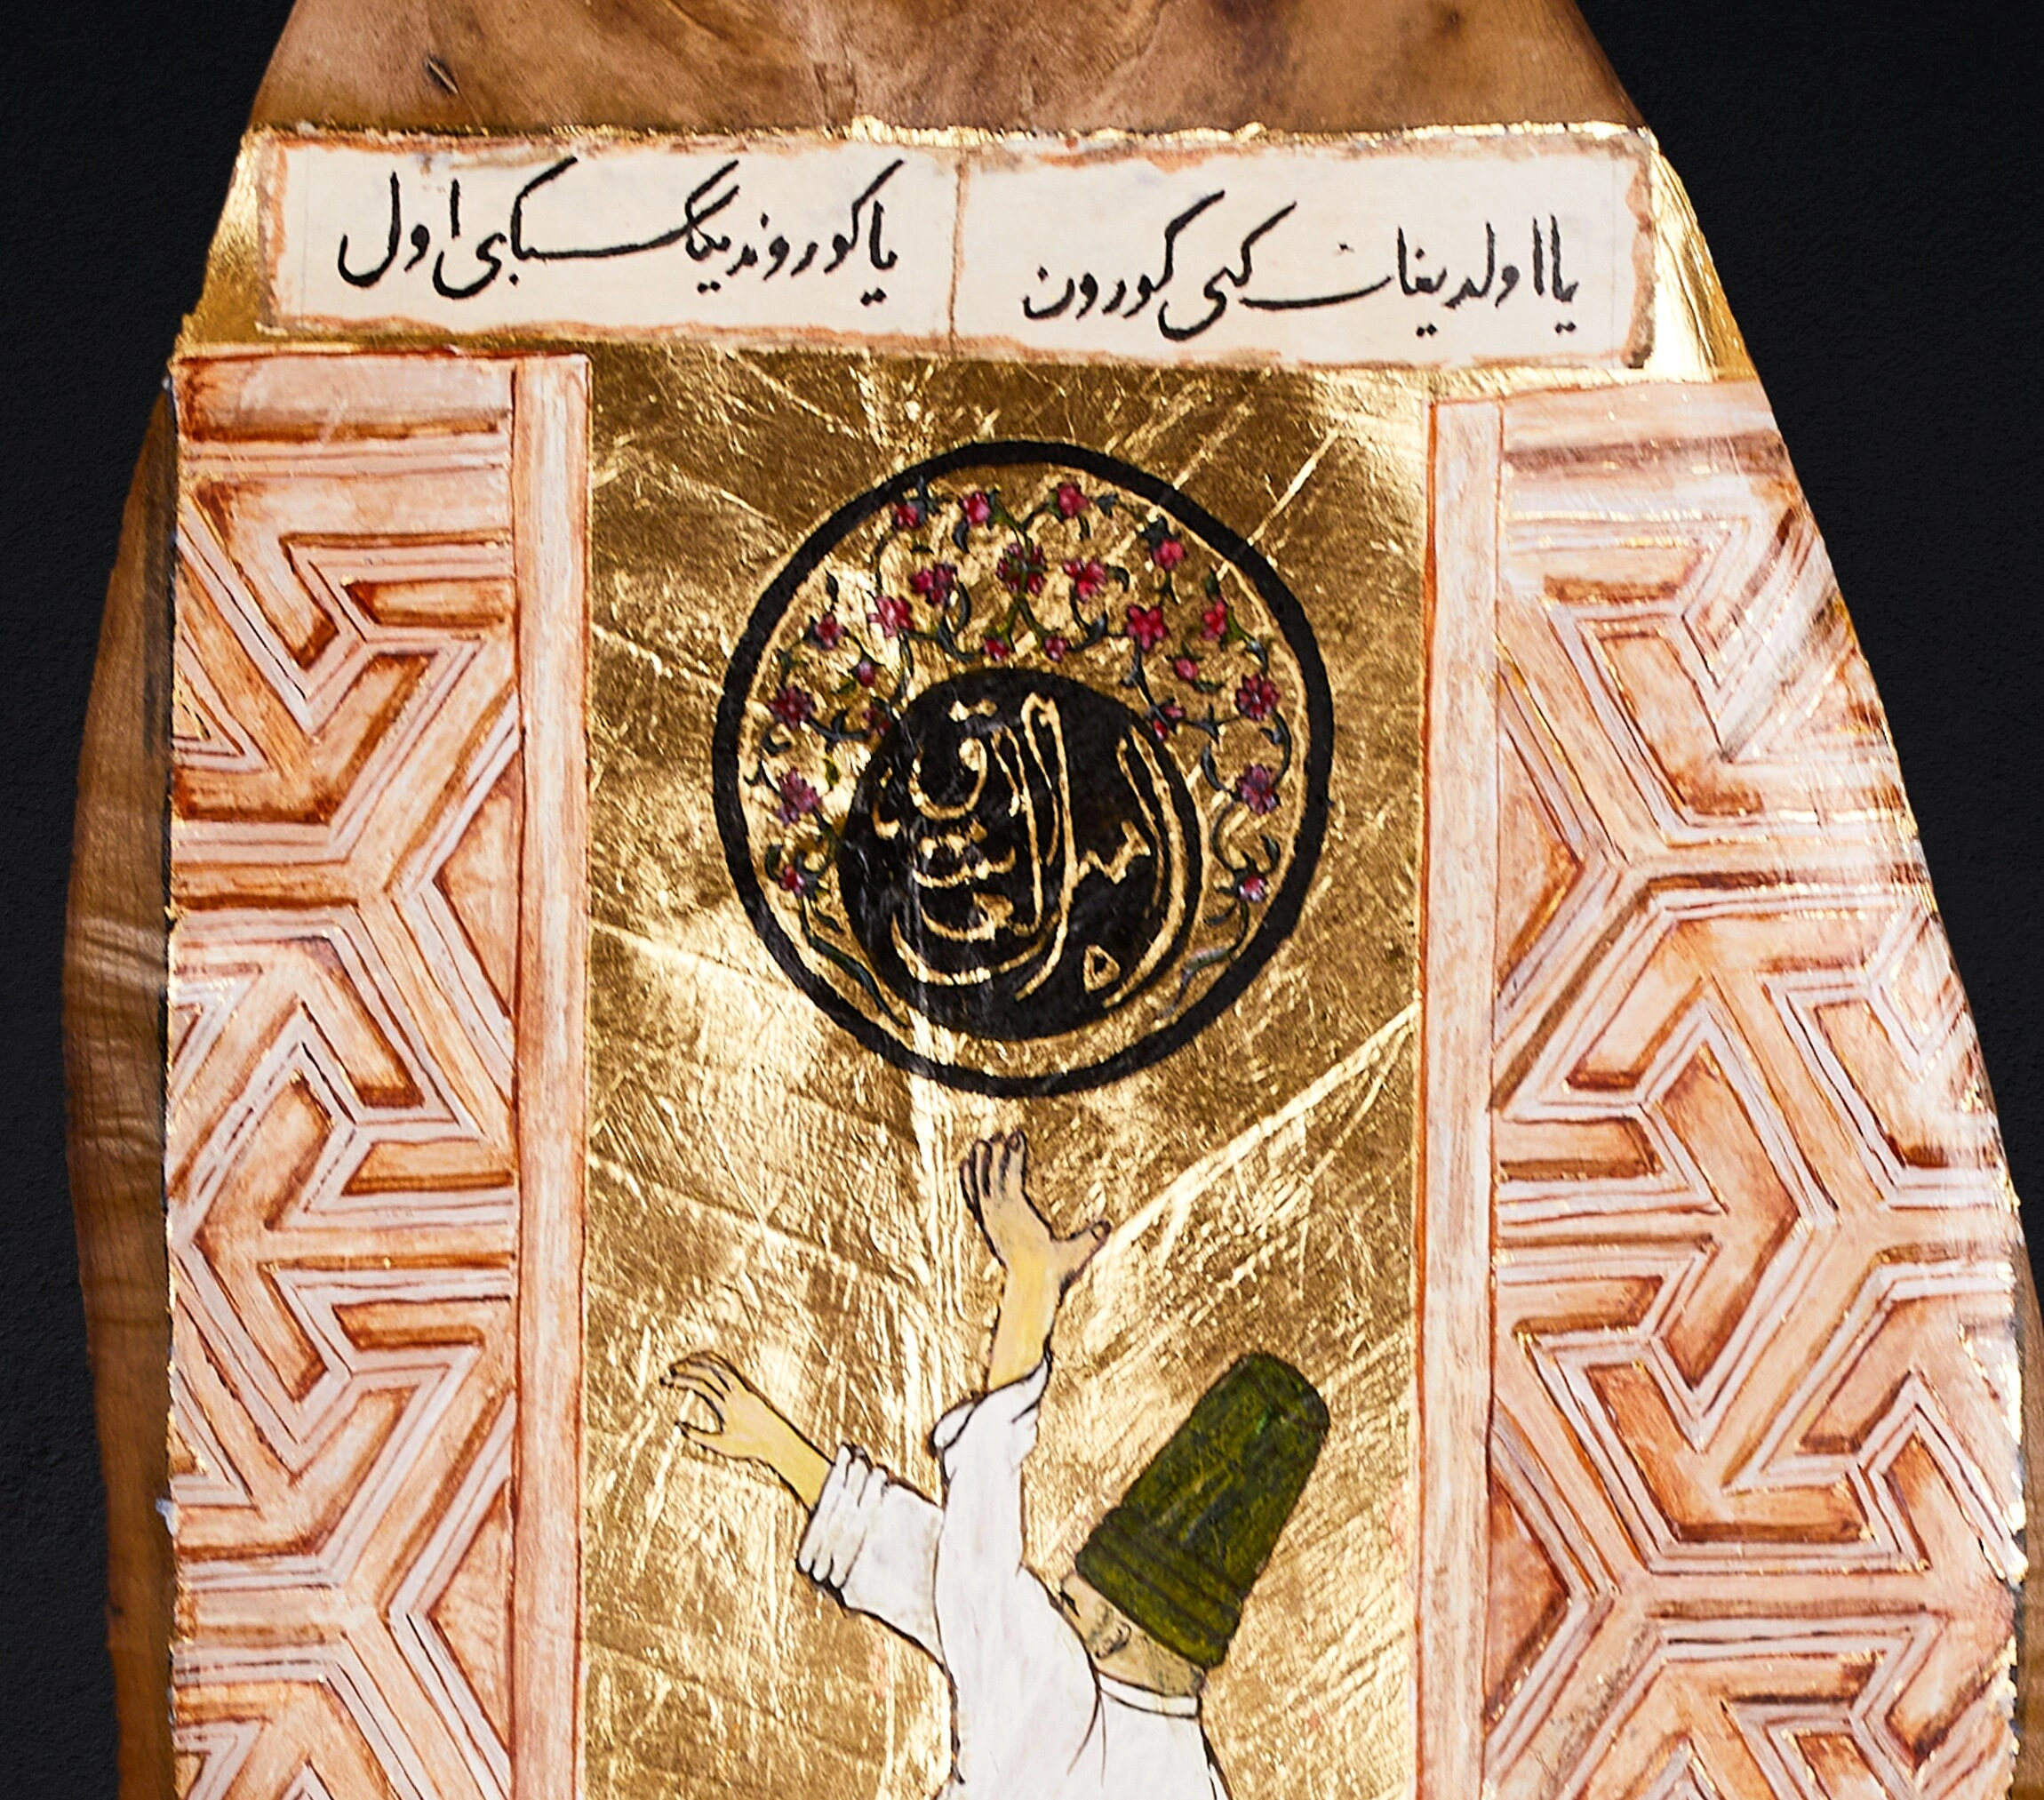 یا اولدیغك کبی کورون
یا کوروندیگك کبی اول